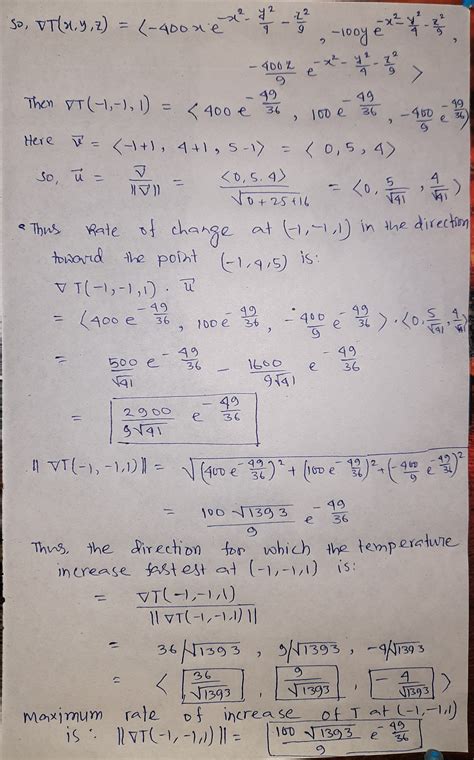 So, ∇T(x,y,z) = ⟨-400xe^{-x²-y²/4-z²/9}, -100ye^{-x²-y²/4-z²/9},
-400z/9 e^{-x²-y²/4-z²/9}⟩
Then ∇T(-1,-1,1) = ⟨400e^{-49/36}, 100e^{-49/36}, -400/9 e^{-49/36}⟩
Here v⃗ = ⟨-1+1, 4+1, 5-1⟩ = ⟨0,5,4⟩
So, u⃗ = v⃗/||v⃗|| = ⟨0,5,4⟩/√(0+25+16) = ⟨0, 5/√41, 4/√41⟩
• Thus Rate of change at (-1,-1,1) in the direction
toward the point (-1,4,5) is:
∇T(-1,-1,1)·u⃗
= ⟨400e^{-49/36}, 100e^{-49/36}, -400/9 e^{-49/36}⟩·⟨0, 5/√41, 4/√41⟩
= 500/√41 e^{-49/36} - 1600/9√41 e^{-49/36}
= 2900/9√41 e^{-49/36}
||∇T(-1,-1,1)|| = √((400e^{-49/36})²+(100e^{-49/36})²+(-400/9 e^{-49/36})²)
= 100√1393/9 e^{-49/36}
Thus, the direction for which the temperature
increase fastest at (-1,-1,1) is:
= ∇T(-1,-1,1)/||∇T(-1,-1,1)||
= 36/√1393, 9/√1393, -4/√1393
= ⟨36/√1393, 9/√1393, -4/√1393⟩
Maximum rate of increase of T at (-1,-1,1)
is: ||∇T(-1,-1,1)|| = 100√1393/9 e^{-49/36}